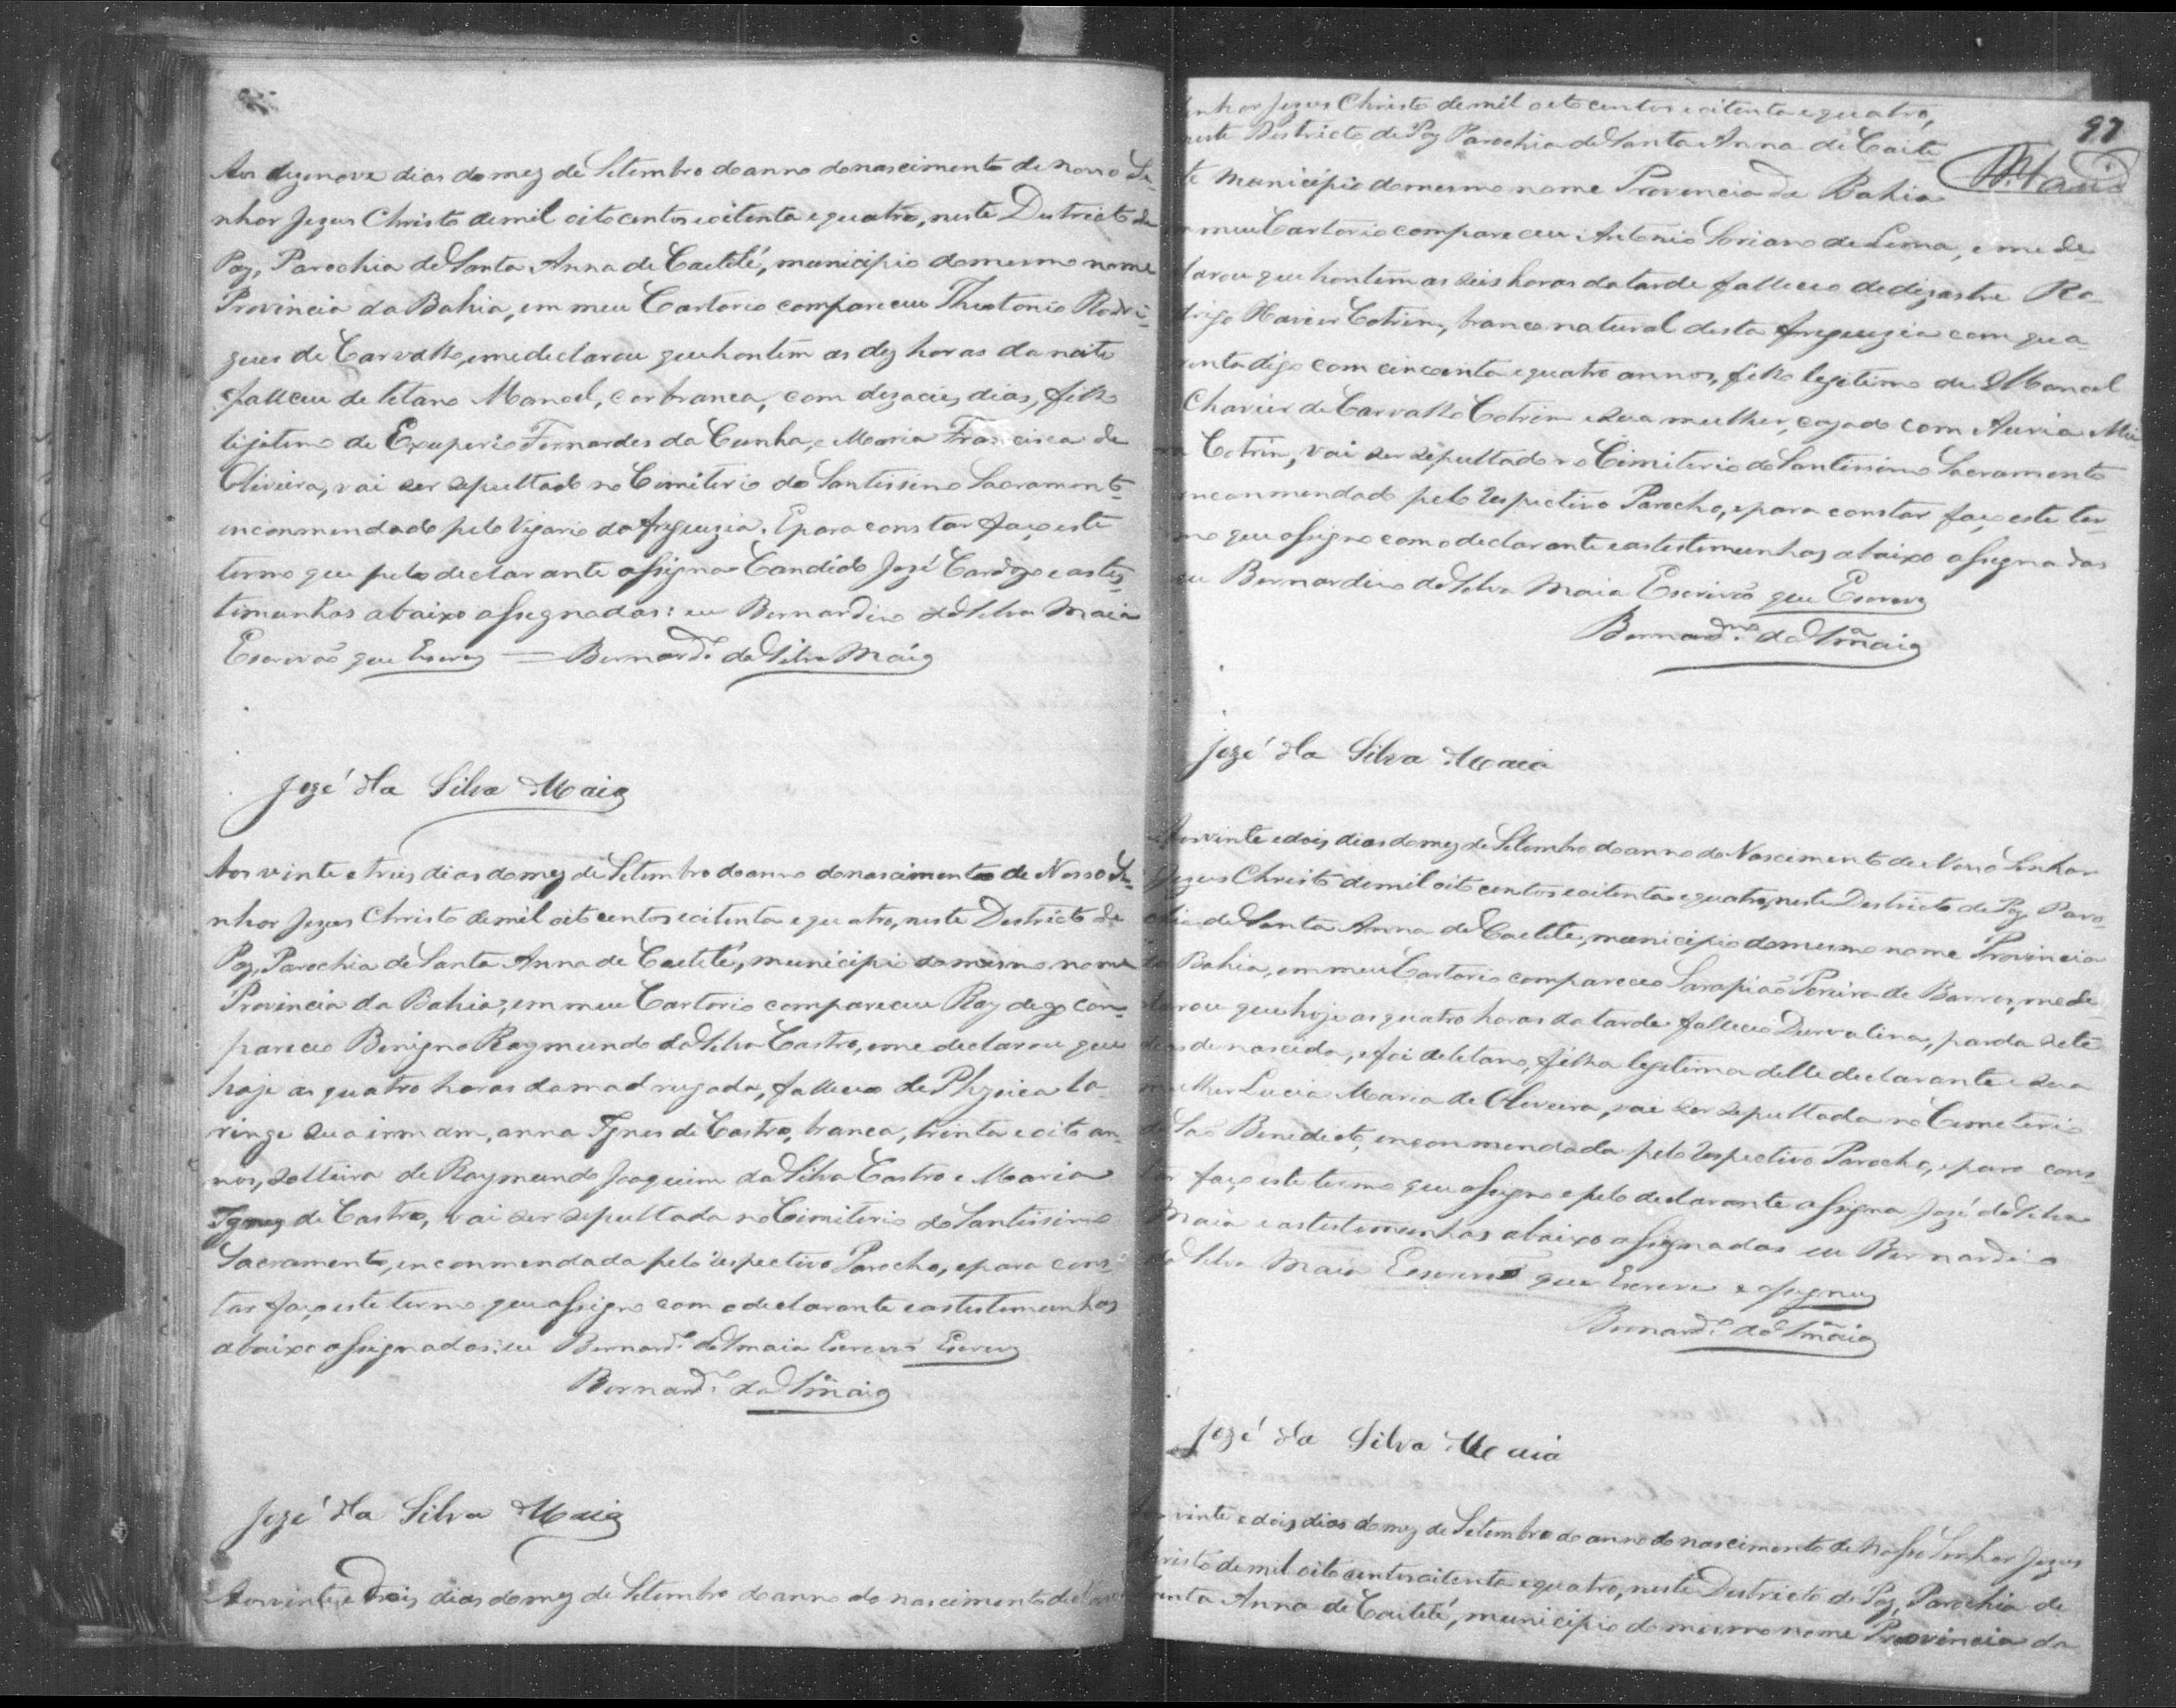 Aos dezenove dias do mez de Setembro do anno do nascimento de Nosso Se-
nhor Jezus Christo de mil oito centos e oitenta e quatro, neste Destricto de
Paz, Parochia de Santa Anna de Caetité, municipio do mesmo nome
Provincia da Bahia, em meu Cartorio compareceu Theotonio Rodri-
gues de Carvalho, e me declarou que hontem as dez horas da noite
falleceu de tetano Manoel, cor branca, com dezaceis dias, filho
ligitimo de Exuperio Fernandes da Cunha, e Maria Francisca de
Oliveira, vai ser sepultado no Cimiterio do Santissimo Sacramento
inconmendado pelo Vigario da freguezia. E para constar faço este
termo que pelo declarante assigna Candido José Cardozo e as tes-
timunhas abaixo assignadas: eu Bernardino da Silva Maia
Escrivão que Escrevy = Bernardo da Silva Maia
Jozé da Silva Maia
Aos vinte e treis dias do mez de Setembro do anno do nascimento de Nosso Se-
nhor Jezus Christo de mil oito centos e oitenta e quatro, neste Destricto de
Paz, Parochia de Santa Anna de Caetité, municipi do mesmo nome
Provincia da Bahia, em meu Cartorio compareceu Ray digo com-
pareceo Benigno Raymundo da Silva Castro, e me declarou que
hoje as quatro horas da madrugada, falleceo de Phzica la-
ringe sua irmam, anna Ignes de Castro, branca, trinta e oito an-
nos, solteira de Raymundo Joaquim da Silva Castro e Maria
Ignez de Castro, vai ser sepultada no Cimiterio do Santissimo
Sacramento, inconmendada pelo respectivo Parocho, e para cons-
tar faço este termo que assigno com o declarante e as testemunhas
abaixo assignadas: eu Bernardo da Sª Maia Escrivão Escrevy
Bernardo da Sª Maia
Jozé da Silva Maia
Aos vinte e dois dias do mez de Setembro do anno do nascimento de Nosso
97
nhor Jezus Christo de mil oito centos e oitenta e quatro,
neste Destricto de Paz Parochia de Santa Anna de Caeti-
té Municipio do mesmo nome Provincia da Bahia
meu Cartorio compareceu Antonio Soriano de Lima, e me de-
clarou que hontem as seis horas da tarde falleceo de dizastre Ro-
drigo Xavier Cotrim, branco natural desta freguezia com qua-
renta digo com cincoenta e quatro annos, filho legitimo de Manoel
Chavier de Carvalho Cotrim e sua mulher, cazado com
Cotrim, vai ser sepultado no Cimiterio do Santissimo Sacramento
inconmendado pelo respectivo Parocho, e para constar faço este ter-
mo que assigno com o declarante e as testemunhas abaixo assignadas
eu Bernardino da Silva Maia Escrivão que Escrevy
Bernardno da Sª Maia
Jozé da Silva Maia
Aos vinte e dois dias do mez de Setembro do anno do Nascimento de Nosso Senhor
Jezus Christo de mil oito centos e oitenta e quatro, neste Destricto de Paz Paro-
chia de Santa Anna de Caetité, municipio do mesmo nome Provincia
da Bahia, em meu Cartorio compareceo Sarapião Pereira de Barros, me de-
clarou que hoje as quatro horas da tarde falleceo Durvalina, parda sete
dias de nascida, e foi de tetano, filha legitima delle declarante e sua
mulher Lucia Maria de Oliveira, vai ser sepultada no Cemeterio
de São Benedicto, inconmendada pelo respectivo Parocho, e para cons-
tar faço este termo que assigno e pelo declarante assigna José da Silva
Maia e as testemunhas abaixo assignadas eu Bernardino
da Silva Maia Escrivão que Escrevi e assigney
Bernardo da Sª Maia
Jozé da Silva Maia
vinte e dois dias do mez de Setembro do anno do nascimento de Nosso Senhor Jezus
Christo de mil oito centos oitenta e quatro, neste Destricto de Paz, Parochia de
Santa Anna de Caitité, municipio do mesmo nome Provincia da